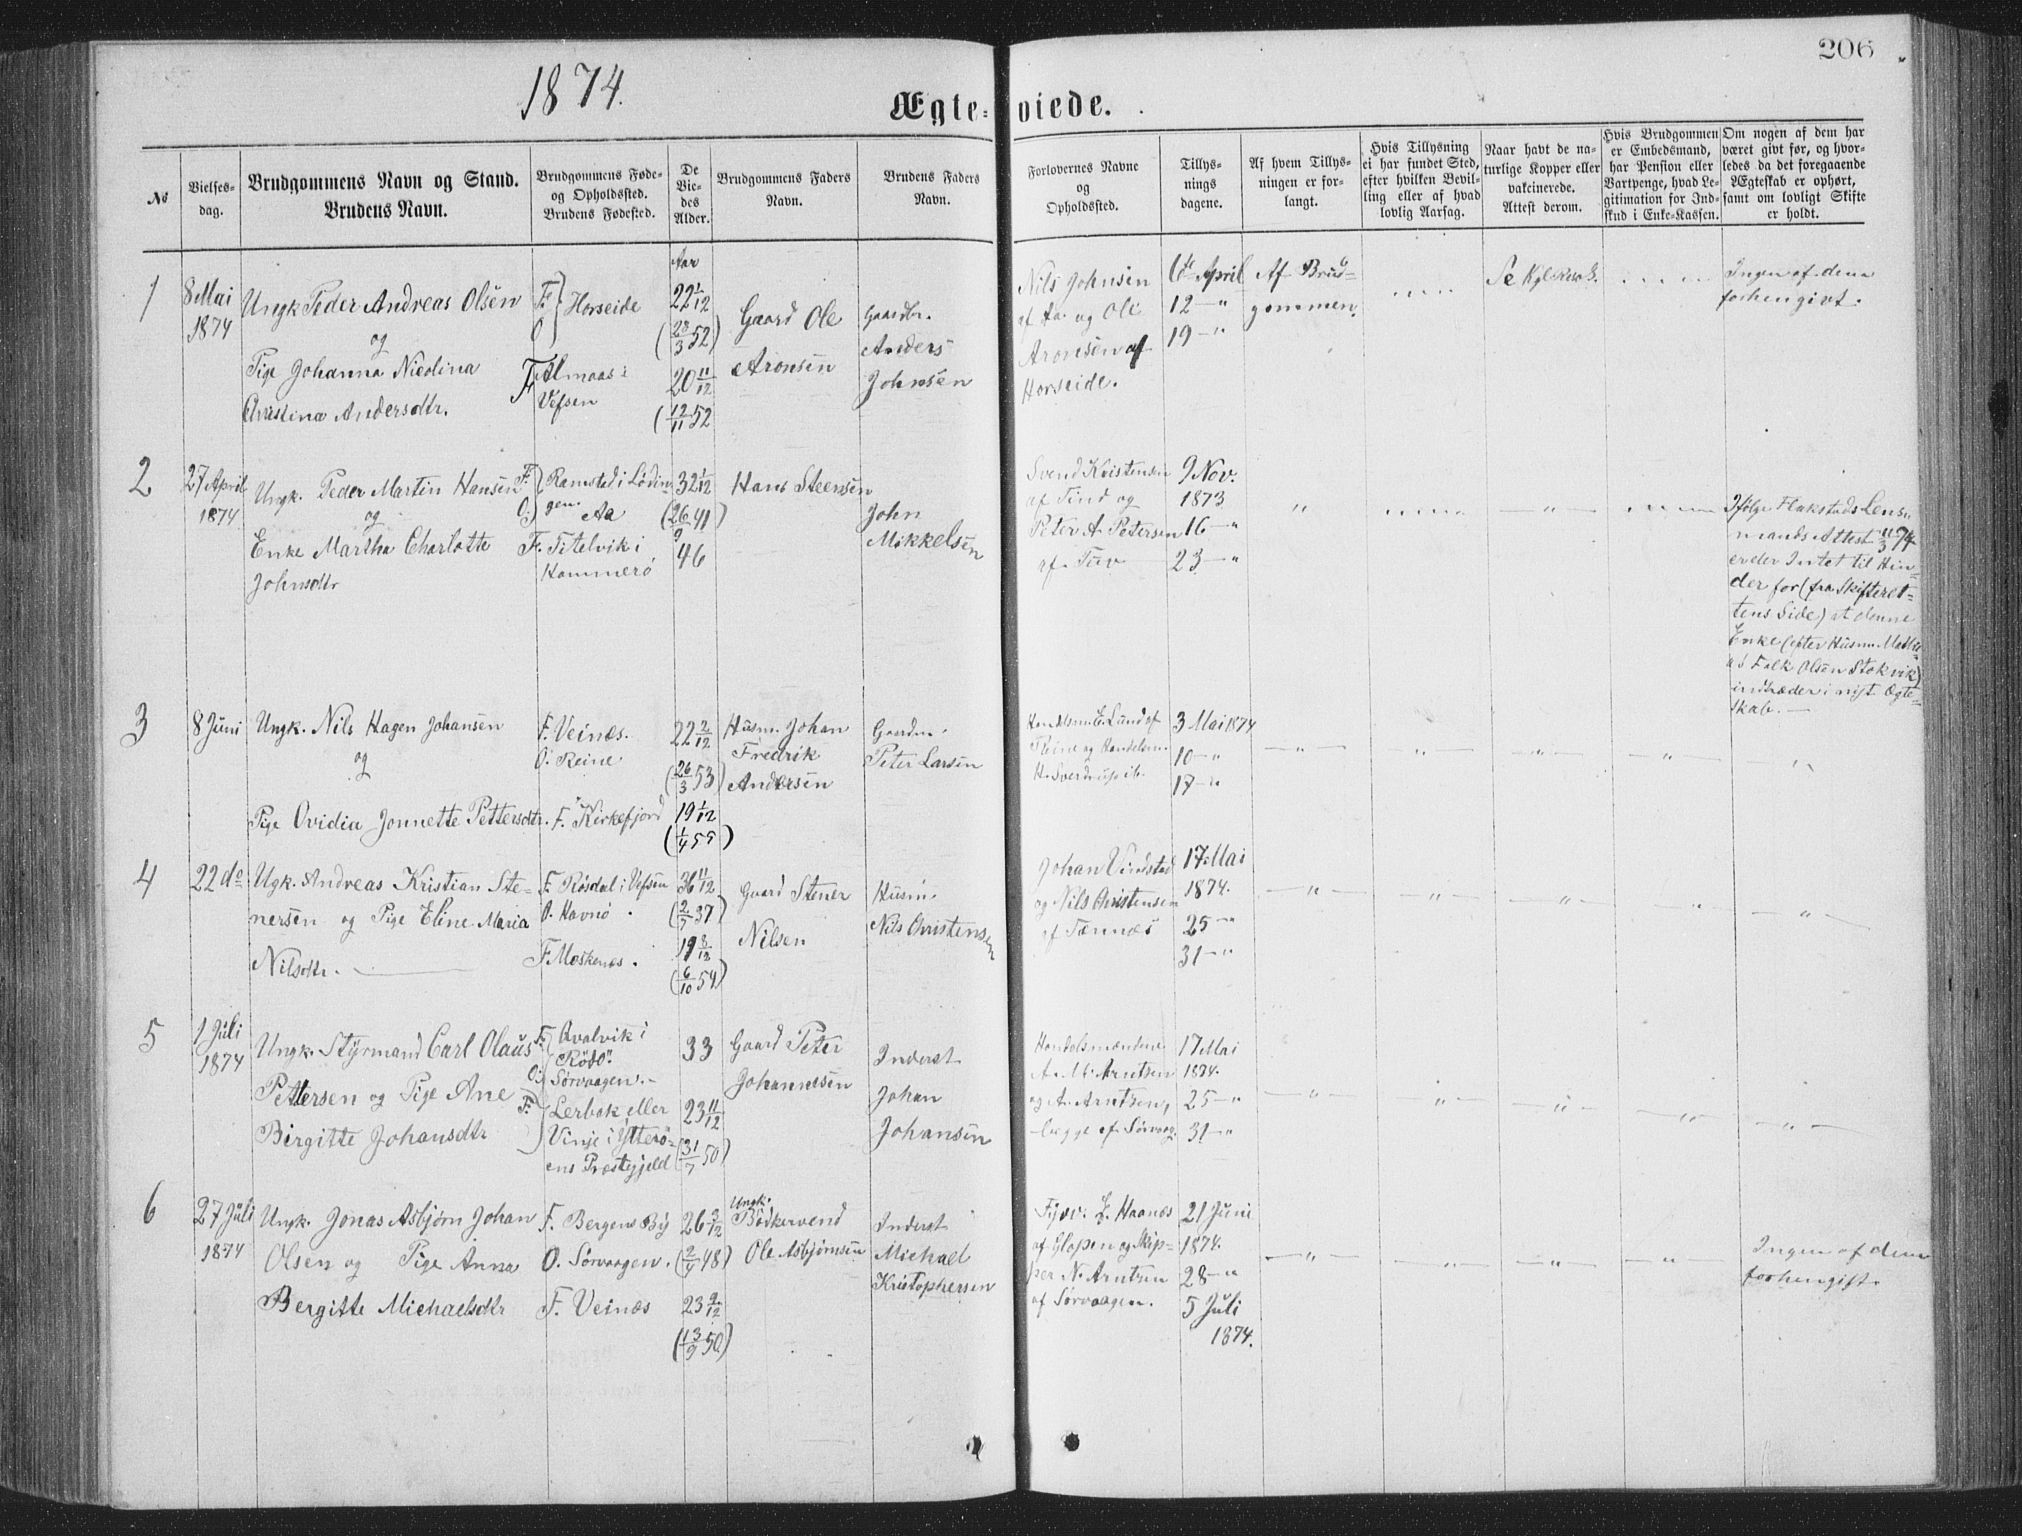 206
1874.
Ægteviede.
No
Vielsesdag.
Brudgommens Navn og Stand.
Brudens Navn.
Brudgommens Føde- og Opholdssted.
Brudens Fødested.
De Viedes Alder.
Brudgommens Faders Navn.
Brudens Faders Navn.
Forlovernes Navne og Opholdssted.
Tillysningsdagene.
Af hvem Tillysningen er forlangt.
Hvis Tillysning ei har fundet Sted, efter hvilken Bevilling eller af hvad lovlig Aarsag.
Naar havt de naturlige Kopper eller vakcinerede. Attest derom.
Hvis Brudgommen er Embedsmand, har Pension eller Vartpenge, hvad Legitimation for Indskud i Enke-Kassen.
Om nogen af dem har været givt før, og hvorledes da det foregaaende Ægteskab er ophørt, samt om lovligt Skifte er holdt.
1
8 Mai
1874
Ungk. Peder Andreas Olsen
og
Pige Johanna Nicolina
Christina Andersdtr.
F. O. Horseide
F. Almaas i
Vefsen
Aar
22 1/12
(28/3 52)
20 11/12
(12/11 52)
Gaard Ole
Aronsen
Gaardbr.
Anders
Johnsen
Nils Johnsen
af Aa og Ole
Aronsen af
Horseide.
6te April
12 — "
19 — "
Af Brud-
gommen.
Se
Ingen af dem
forhen givt.
2
27 April
1874
Ungk. Peder Martin Hansen
og
Enke Martha Charlotte
Johnsdtr
F. Ramstad i Lødin-
gen
O. Aa
F. Titelvik i
Hammerø
32 1/12
(26/9 41)
46
Hans Steensen
John
Mikkelsen
Svend Kristensen
af Tind og
Peter A. Petersen
af Tuv
9 Nov.
1873
16 — "
23 — "
"
— " —
Ifølge Flakstads Lens-
mands Attest 11/3 74
er der Intet til Hin-
der for (fra Skifteret-
tens Side) at denne
Enke (efter Husm. Mathi-
as Falk Olsen Stokvik)
indtræder i nyt Ægte-
skab. —
3
8 Juni
Ungk. Nils Hagen Johansen
og
Pige Ovidia Jonnette Pettersdtr.
F. Veinæs.
O. Reine
F. Kirkefjord
22 2/12
(26/3 53)
19 1/12
(1/4 55)
Husm. Johan
Fredrik
Andersen
Gaardm.
Peter Larsen
Handelsm. E. Lund af
Reine og Handelsm.
H. Sverdrup ib.
3 Mai 1874
10 — "
17 — "
— " —
"
— " —
— " —
"
4
22 do
Ugk. Andreas Kristian Ste-
nersen og Pige Eline Maria
Nilsdtr. —
F. Røsdal i Vefsen
O. Havnø.
F. Moskenes.
36 11/12
(2/7 37)
19 8/12
(6/10 54)
Gaard Stener
Nilsen
Husm.
Nils Christensen
Johan Vindstad
og Nils Christensen
af Tennes
17 Mai
1874.
25 — "
31 — "
— " —
— " —
— " —
— " —
— " —
5
1 Juli
1874
Ungk. Styrmand Carl Olaus
Pettersen og Pige Ane
Birgitte Johansdtr
F. Qvalvik i
Rødø.
O. Sørvaagen. —
F. Lerbak eller
Vinje i Ytterø-
ens Præstegjeld
33
23 11/12
(31/7 50)
Gaard Peter
Johannesen
Inderst
Johan
Johansen
Handelsmændene
A. M. Arntsen
og A. Arntsen,
begge af Sørvaag.
17 Mai
1874.
25 — "
31 — "
— " —
— " —
— " —
— " —
— " —
6
27 Juli
1874
Ungk. Jonas Asbjørn Johan
Olsen og Pige Anna
Bergitte Michaelsdtr
F. Bergens By
O. Sørvaagen.
F. Veinæs
26 3/12
(2/4 48)
23 9/12
(13/9 50)
Ungk.
Bødkersvend
Ole Asbjørnsen
Inderst
Michael
Kristophersen
L. Haanes
af Glopen og Skip-
per N. Arntzen
af Sørvaagen.
21 Juni
1874.
28 — "
5 Juli
1874.
— " —
— " —
— " —
— " —
Ingen af dem
forhen gift.